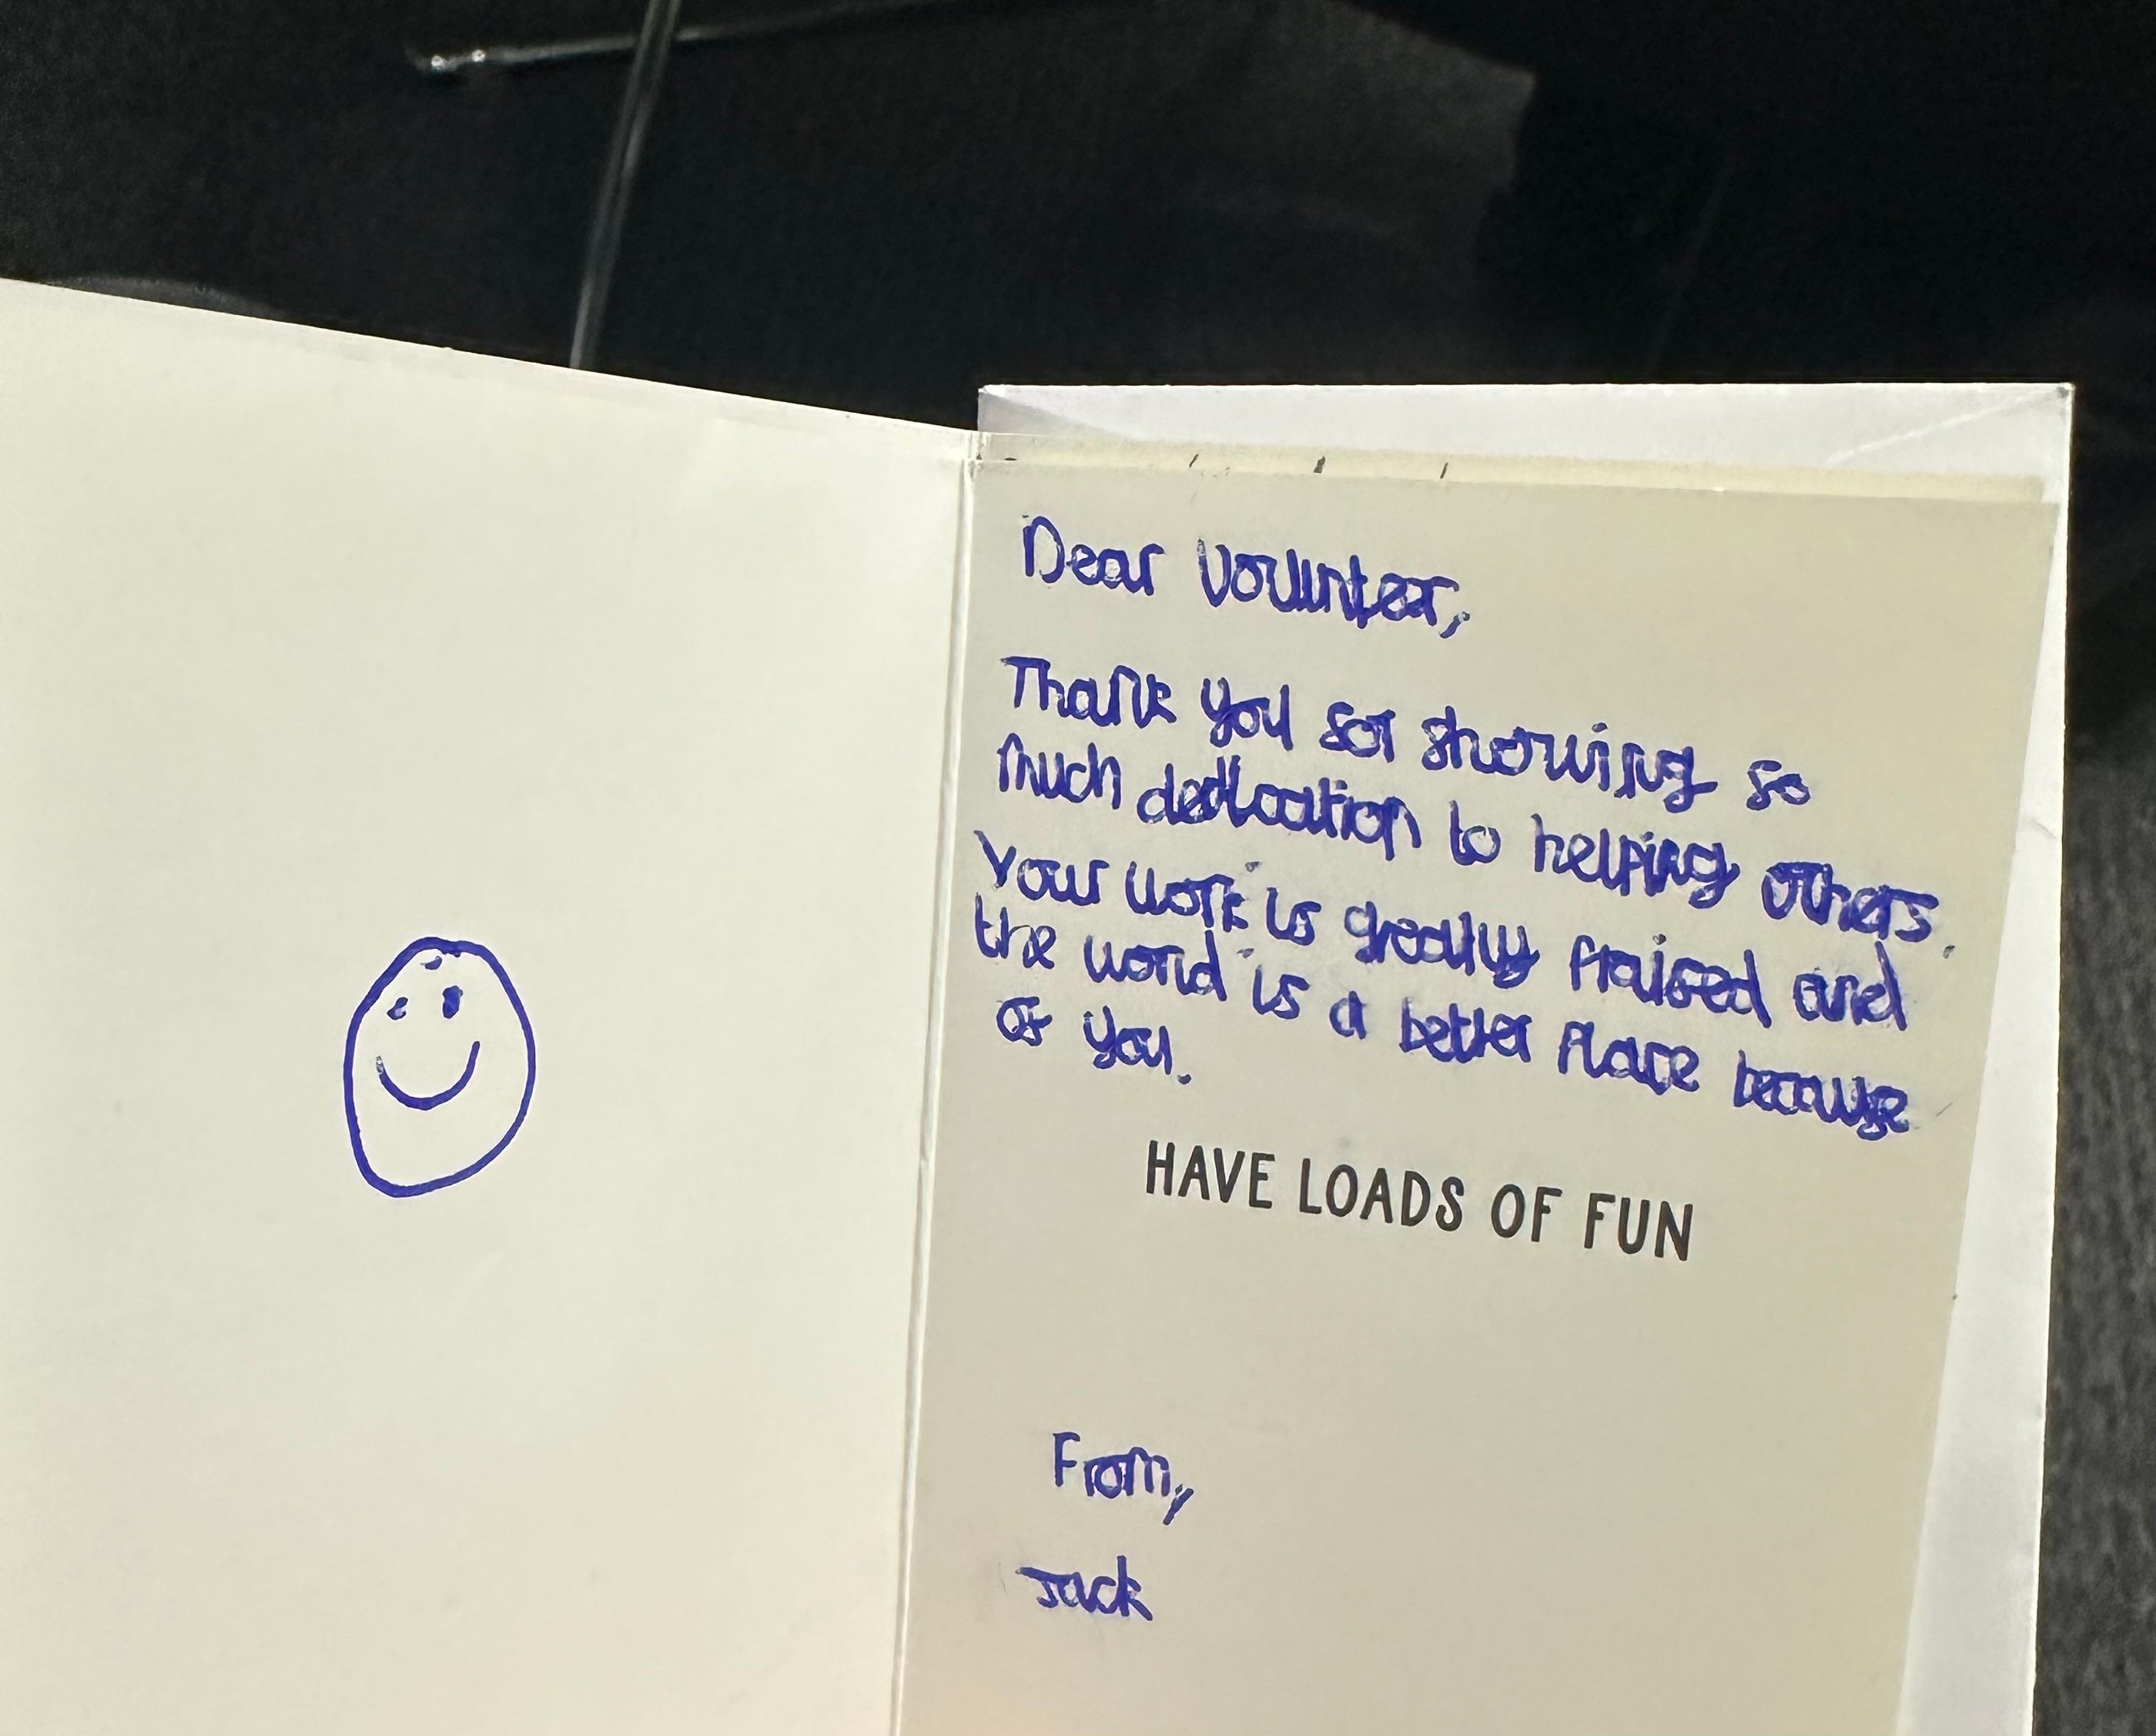 Dear Volunter,
Thank you for showing so
much dedication to helping others.
Your work is greatly praised and
the world is a better place because
of you.
HAVE LOADS OF FUN
From,
Jack